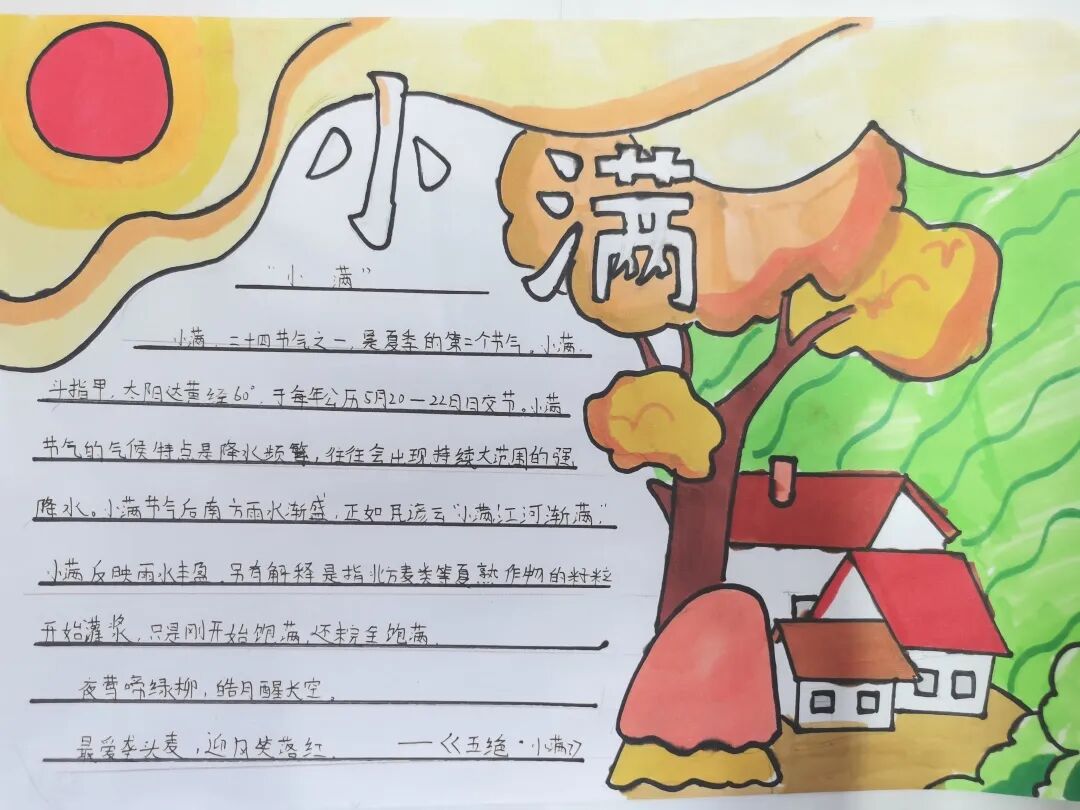 小满
“小满”
小满，二十四节气之一，是夏季的第二个节气。小满，
斗指甲，太阳达黄经60°，于每年公历5月20—22日日交节。小满
节气的气候特点是降水频繁，往往会出现持续大范围的强
降水。小满节气后南方雨水渐盛，正如民谚云“小满江河渐满”
小满反映雨水丰盈，另有解释是指北方麦类等夏熟作物的籽粒
开始灌浆，只是刚开始饱满，还未完全饱满。
夜莺啼绿柳，皓月醒长空。
最爱垄头麦，迎风笑落红。 ——《五绝·小满》